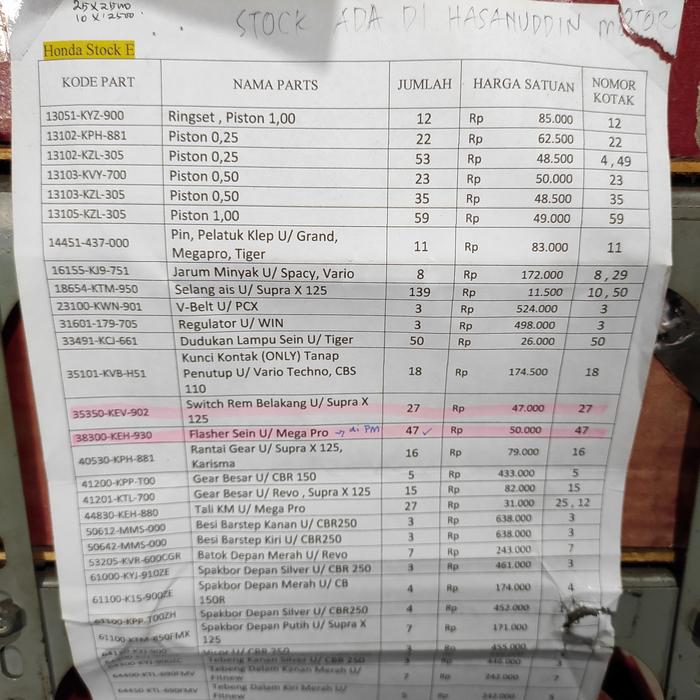 25 x 2500
10 x 12500
STOCK ADA DI HASANUDDIN MOTOR
Honda Stock E
KODE PART NAMA PARTS JUMLAH HARGA SATUAN NOMOR KOTAK
13051-KYZ-900 Ringset , Piston 1,00 12 Rp 85.000 12
13102-KPH-881 Piston 0,25 22 Rp 62.500 22
13102-KZL-305 Piston 0,25 53 Rp 48.500 4 , 49
13103-KVY-700 Piston 0,50 23 Rp 50.000 23
13103-KZL-305 Piston 0,50 35 Rp 48.500 35
13105-KZL-305 Piston 1,00 59 Rp 49.000 59
14451-437-000 Pin, Pelatuk Klep U/ Grand, Megapro, Tiger 11 Rp 83.000 11
16155-KJ9-751 Jarum Minyak U/ Spacy, Vario 8 Rp 172.000 8 , 29
18654-KTM-950 Selang ais U/ Supra X 125 139 Rp 11.500 10 , 50
23100-KWN-901 V-Belt U/ PCX 3 Rp 524.000 3
31601-179-705 Regulator U/ WIN 3 Rp 498.000 3
33491-KCJ-661 Dudukan Lampu Sein U/ Tiger 50 Rp 26.000 50
35101-KVB-H51 Kunci Kontak (ONLY) Tanap Penutup U/ Vario Techno, CBS 110 18 Rp 174.500 18
35350-KEV-902 Switch Rem Belakang U/ Supra X 125 27 Rp 47.000 27
38300-KEH-930 Flasher Sein U/ Mega Pro → di PM 47 ✓ Rp 50.000 47
40530-KPH-881 Rantai Gear U/ Supra X 125, Karisma 16 Rp 79.000 16
41200-KPP-T00 Gear Besar U/ CBR 150 5 Rp 433.000 5
41201-KTL-700 Gear Besar U/ Revo , Supra X 125 15 Rp 82.000 15
44830-KEH-880 Tali KM U/ Mega Pro 27 Rp 31.000 25 , 12
50612-MMS-000 Besi Barstep Kanan U/ CBR250 3 Rp 638.000 3
50642-MMS-000 Besi Barstep Kiri U/ CBR250 3 Rp 638.000 3
53205-KVR-600CGR Batok Depan Merah U/ Revo 7 Rp 243.000 7
61000-KYJ-910ZE Spakbor Depan Silver U/ CBR 250 3 Rp 461.000 3
61100-K15-900ZE Spakbor Depan Merah U/ CB 150R 4 Rp 174.000 4
61100-KPP-T00ZH Spakbor Depan Silver U/ CBR250 4 Rp 452.000
61100-KTM-850FMX Spakbor Depan Putih U/ Supra X 125 7 Rp 171.000
U/ CBR 250 3 Rp 455.000
Tebeng Kanan Silver U/ CBR 250 3 Rp
64400-KTL-690FMV Tebeng Dalam Kanan Merah U/ Fitnew 7 Rp 242.000 7
64450-KTL-690FMV Tebeng Dalam Kiri Merah U/ Fitnew Rp 242.000